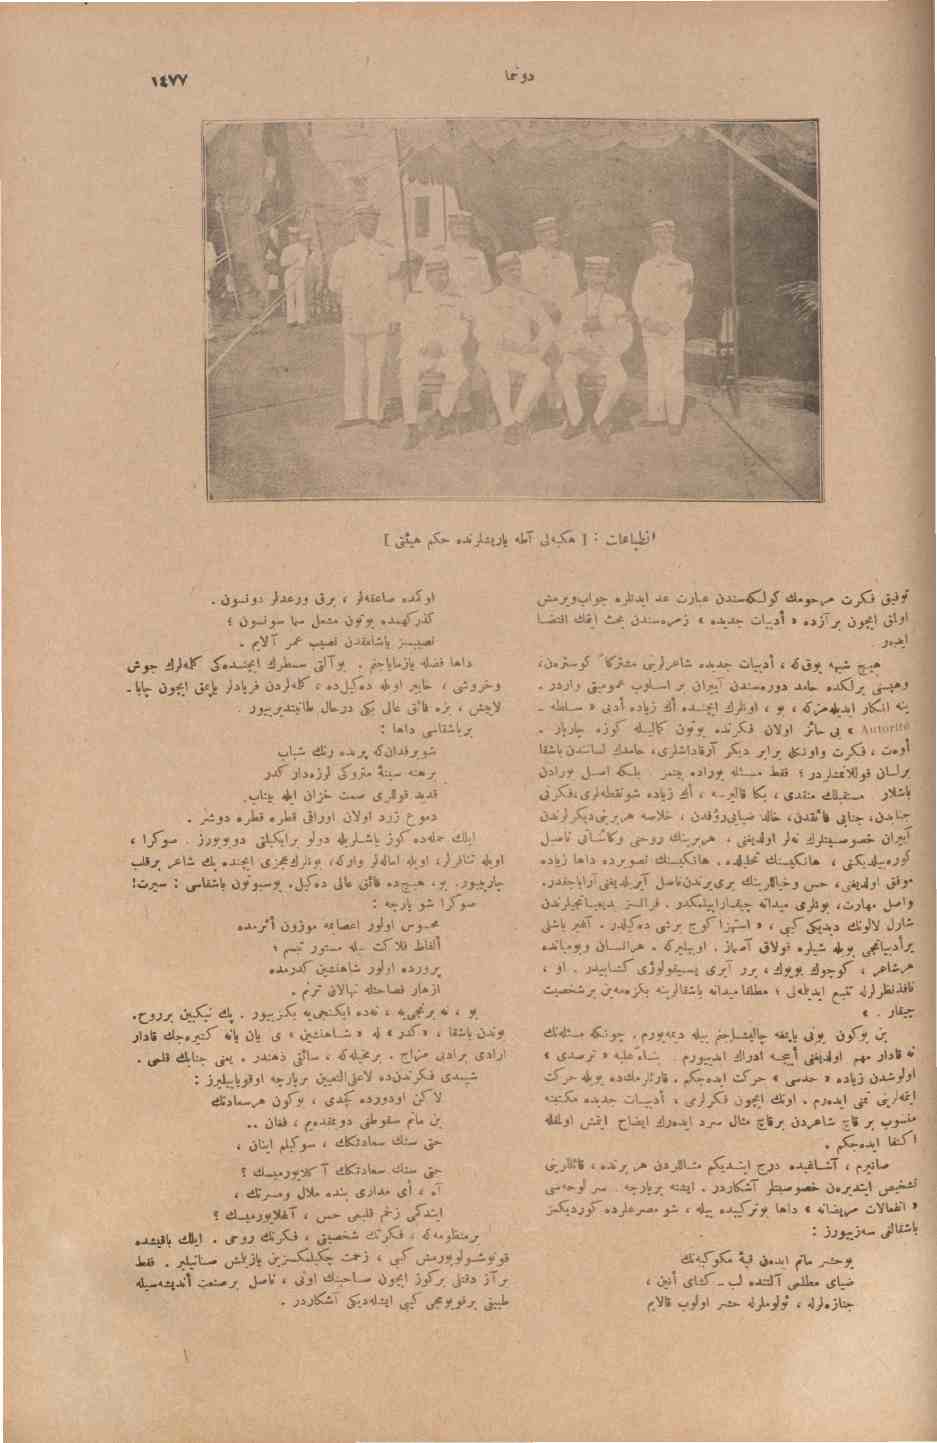 دونما
١٤٧٧
انطباعات : [ هكبه‌لی آطه یاریشلرنده حكم هیئتی ]
توفیق فكرت مرحومك كولـكه‌سندن عبارت عد ایدنلره جواب ویرمش
اولمق ایچون بر آزده « أدبیات جدیده » زمره‌سندن بحث ایتمك اقتضـا
ایدەر
هیـچ شبهه یوق‌كه ، أدبیات جدیده شاعرلرینی مشتركاً كوسترەن،
وهپسنی برلكده حامد دوره‌سندن آییران بر اسـلوب عمومیتی واردر .
ینه انكار ایدیله‌مزكه ، بو ، اونلرك ایچنـده أك زیاده أدبی « سـلطه ـ
Autorité » یی حائز اولان فكرتده بوتون كمالیـله كوزه چارپار .
أوەت ، فكرت واونكله برابر دیكر آرقاداشلری، حامدك لسانندن باشقا
برلسان قوللانمشلردر ؛ فقط مسـئله بوراده بیتمز . بلـكه اصـل بورادن
باشلار . مستقبلك منقدی ، بكا قالیرسه ، أك زیاده شو نقطه‌لری، فكرتی
جنابدن، جنابی فائقدن، خالد ضیایی رؤفدن ، خلاصه هربرینی دیكرلرندن
آییران خصوصیتلرك نه‌لر اولدیغنی ، هربرینك روحنی وكائنـاتی ناصل
كوره‌بیلدیكنی ، هانكیسنك تحلیلده ، هانكیسنك تصویرده داها زیاده
موفق اولدیغنی، حس وخیاللرینك بری برندن ناصل آیریلدیغنی آرایاجقدر.
واصل مهارت، بونلری میدانه چیقـاراپیلمكدر. فرانسز بدیعیـاتجیلرندن
شارل لالونك دیدیكی كبی ، « استهزا كوج برشی ده‌كیلدر. آغیر باشلی
برأدبیاتجی بویله شیلره قولاق آصماز . اوبیلیركه . هرانسـان وبومیانده
هرشاعر ، كوچوك بویوك ، برر آیری پسیقولوژی كتـابیدر . او ،
نافذ نظرلرله تتبع ایدیله‌لی ؛ مطلقا میدانه باشقالرینه بكزه‌مه‌ین برشخصیت
چیقار . »
بن بوكون بونی یاپمغه چالیشـاجغم بیله دیمه‌یورم . چونكه مسئله‌نك
نه قادار مهم اولدیغنی أییجـه ادراك ایدییورم . بنـاءً علیه « ترصدی »
اولوشدن زیاده « حدسی » حركت ایده‌جكم . قارئلرمك‌ده بویله حركت
ایتمه‌لرینی تمنی ایدەرم . اونك ایچون فكرلرمی ، أدبیـات جدیده مكتبنه
منسوب بر قاچ شاعردن برقاچ مثال سرد ایدەرك ایضاح ایتمش اولمقله
اكتفا ایده‌جكم .
صانیرم ، آشـاغیده درج ایتـدیكم مثـاللردن هر برنده ، قائللرینی
تشخیص ایتدیرەن خصوصیتلر آشكاردر . ایشته برپارچه . سر لوحه‌سی
« انفعالات مریضانه » داها بوتركیبده بیله ، شو مصرعلرده كوردیكمز
باشقالغی سەزییورز :
بوحشر ماتم ایدەن قبهٔ مكوكبه‌نك
ضیای مظلمی آلتنده لب ـ كشای أنین ،
جنازه‌لرله ، ئولوملرله حشر اولوب قالایم
اوكمده صاعقه‌لر ، برق ورعدلر دونسون .
كذركهمده بوتون مشعل سما سونسون ؛
نصیبسز یاشامقدن نصیب عمر آلایم .
داها فضله یازمایاجغم . بوآلتی سـطرك ایچنـده‌كی كله‌لرك جوش
وخروشی ، خایر اویله ده‌كیل‌ده ، كله‌لردن فریادلر یاپمق ایچون چابا ـ
لاییش ، بزه فائق عالی بكی درحال طانیتدیرییور .
برباشقاسی داها :
شوبرفدان‌كه پریده رنك شباب
برهنه سینهٔ متروكی لرزه‌دار كدر
قدید قوللری سمت خزان ایله بیتاب
دموع زرد اولان اوراقی قطره قطره دوشر .
ایلك حمله‌ده كوز یاشـلریله دولو برایكیلتی دویویورز . صوكرا ،
اویله تنافرلر، اویله اماله‌لر واركه، بونلرك مجزی ایچنده پك شاعر برقلب
چارپییور. بو، هیـچ‌ده فائق عالی ده‌كیل. بوسبوتون باشقاسی : سیرت!
صوكرا شو پارچه :
محسوس اولور اعصابمه موزون أثرمده
ألفاظ فلاكت ـله مستور تبسم ؛
پرورده اولور شاهنشین كدرمده
ازهار فصاحتله نهالان ترنم .
بو ، نه برنجی‌یه ، نه‌ده ایكنجی‌یه بكزییور . پك نیكبین برروح.
بوندن باشقا ، «كدر » له « شـاهنشین » ی یان یانه كتیره‌جك قادار
ارادی برادبی مزاج . برمخیله‌كه ، سائقی ذهندر . یعنی جنابك قلمی .
شیمدی فكرتدن‌ده لاعلی‌التعیین برپارچه اوقویابیلیرز :
لاكن اودورده كچدی ، بوكون هرسعادتك
بن ماتم سقوطنی دویمقده‌یم ، فغان ..
حتی سنك سعادتكك ، سوكیلم اینان ،
حتی سنك سعادتكك آ كلایورمیسك ؟
آه ، أی مداری بنده ملال ومسرتك ،
ایتدكمی زخم قلبمی حس ، آغلایورمیسك ؟
برمنظومه‌كه ، فكرتك شخصیتی ، فكرتك روحی . ایلك باقیشده
قونوشـولویورمش كبی ، زحمت چكیلمكـزین یازیلمش صـانیلیر . فقط
بر آز دقتلی بركوز ایچون صـاحبنك اونی ، ناصل برصنعت أندیشه‌سیله
طبیتی برقویومجی كبی ایشله‌دیكی آشكاردر .